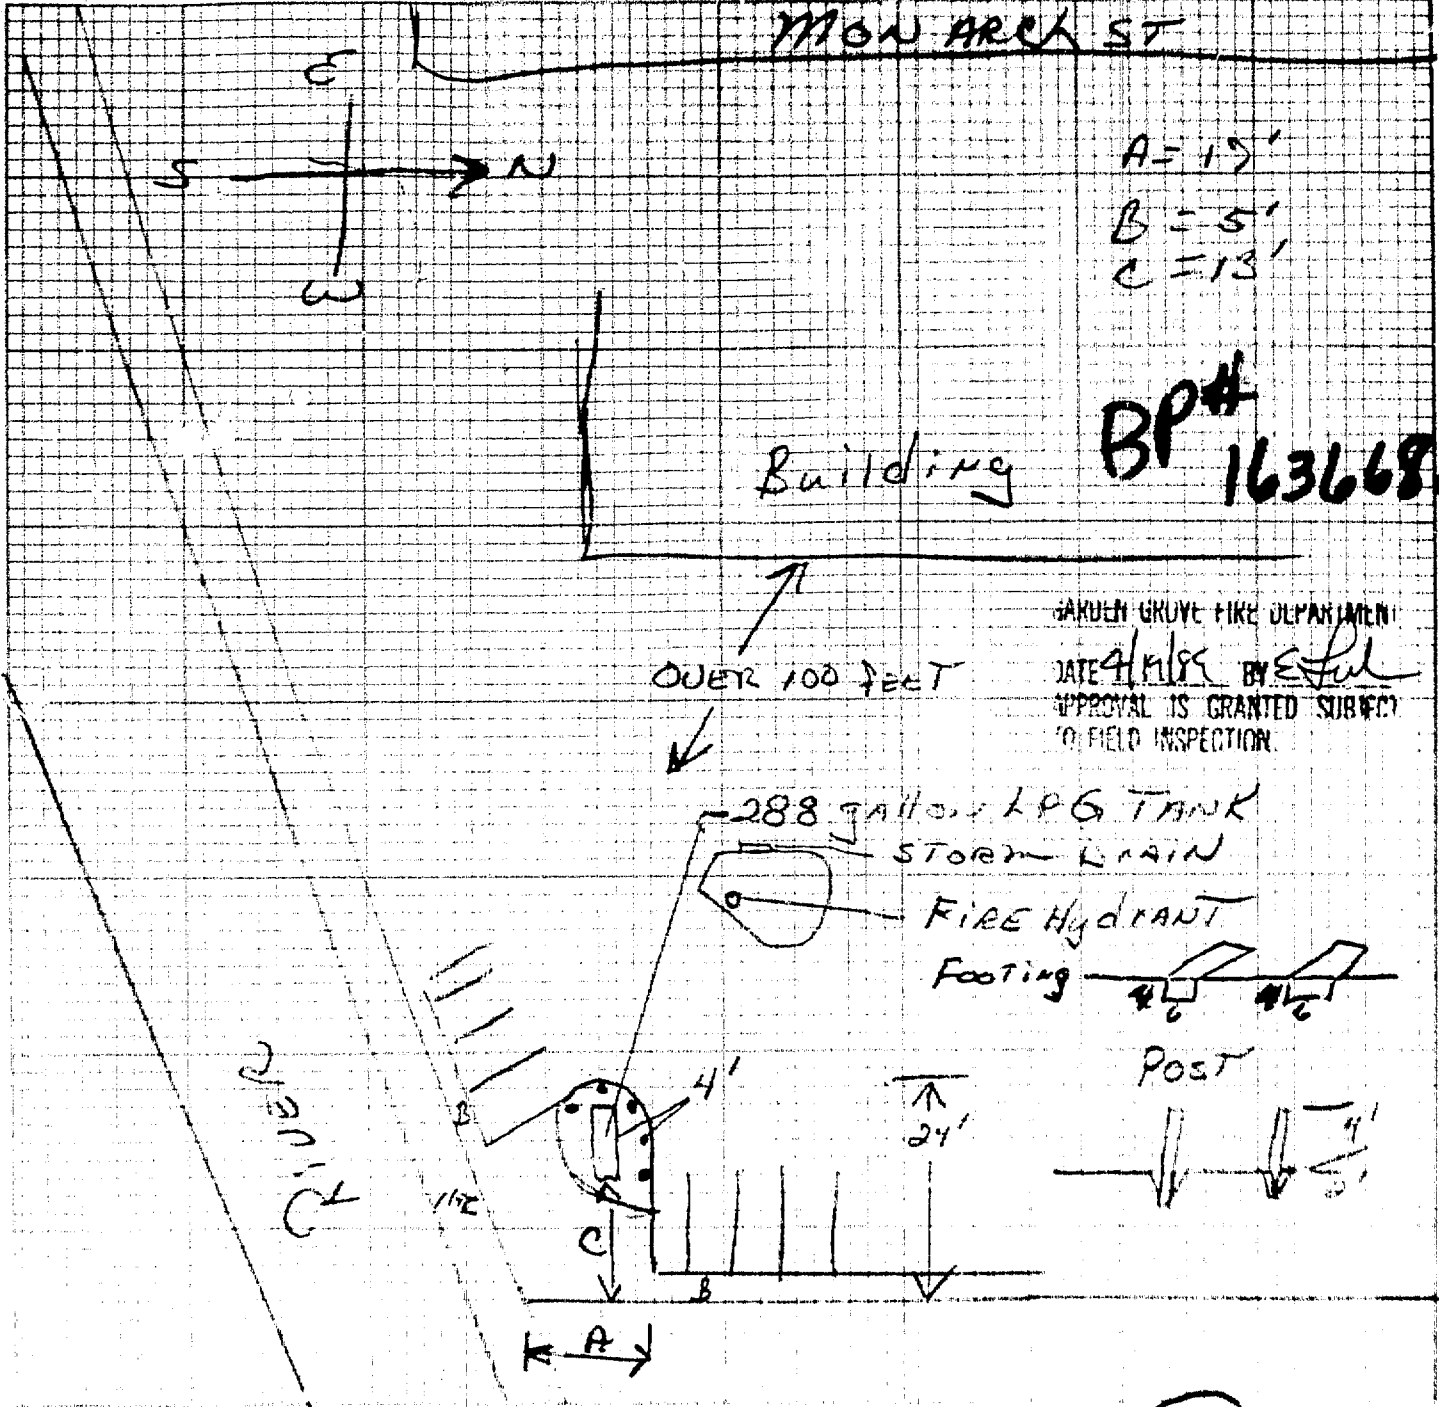 MONARCH ST
E
S N
W
A = 19'
B = 5'
C = 13'
Building
BP# 163668
OVER 100 FEET
GARDEN GROVE FIRE DEPARTMENT
DATE BY
APPROVAL IS GRANTED SUBJECT
TO FIELD INSPECTION.
288 gallon LPG TANK
STORM DRAIN
FIRE HydrANT
Footing
4 6 4 6
Post
4'
24'
4'
B
RIVER
C
B
A